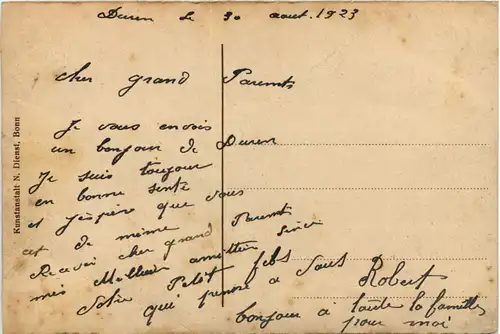 Duren le 30 aout. 1923
cher grand Parents
Je vous envois
un bonjour de Duren
Je suis toujour
en bonne senté
et j'espère que vous
est de même
Recever cher grand Parents
mes Meilleur amitier sincer
Votre Petit fils
qui pense a vous
Robert
bonjour a toute la famille
pour moi
Kunstanstalt N. Dienst, Bonn